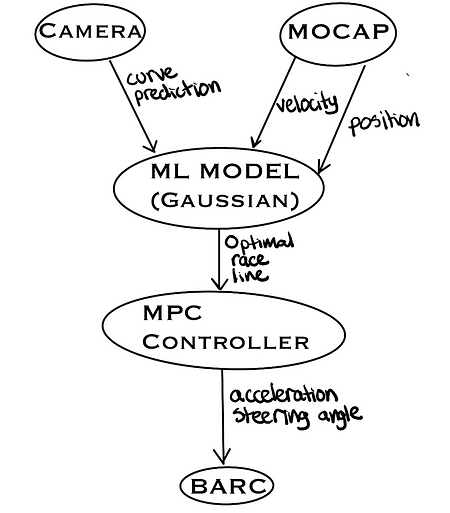 CAMERA
MOCAP
curve
prediction
velocity
position
ML MODEL
(GAUSSIAN)
Optimal
race
line
MPC
CONTROLLER
acceleration
steering angle
BARC